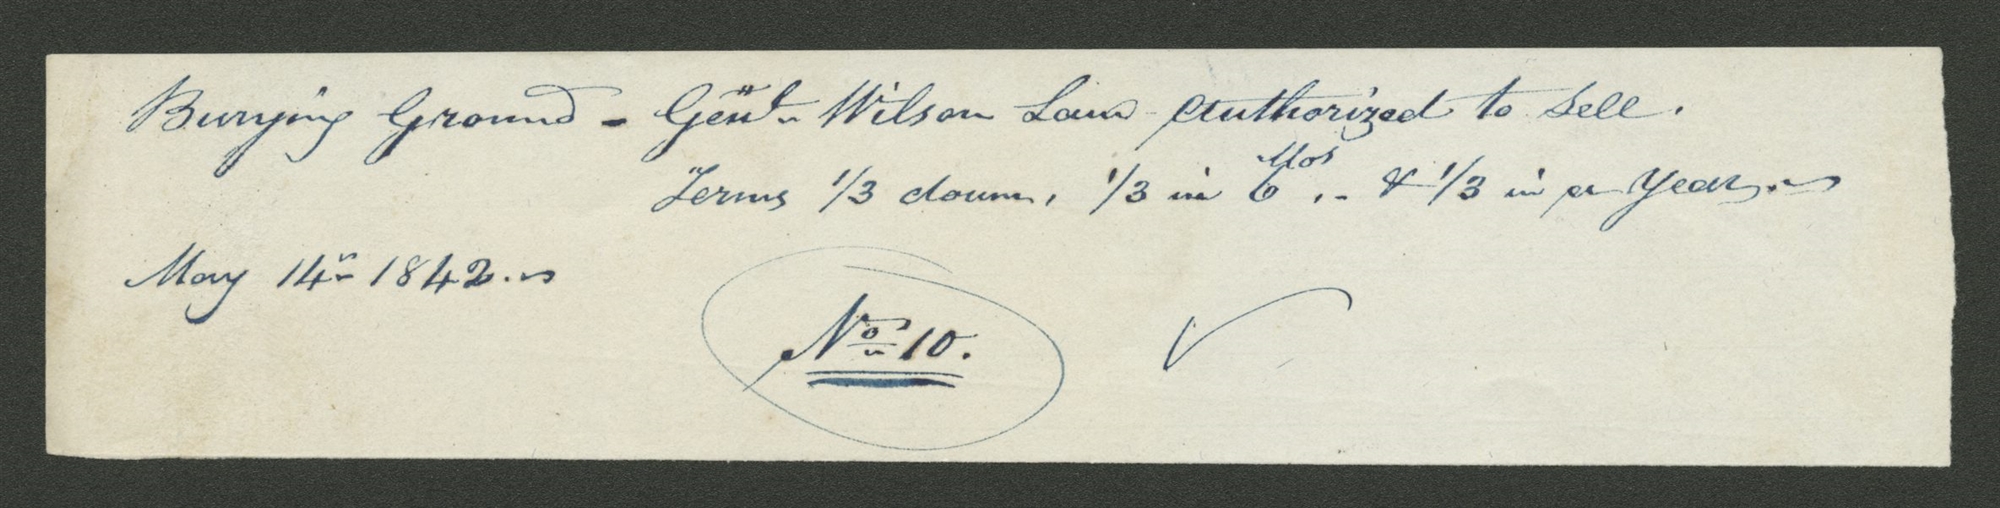 Burying Ground - Genl. Wilson Law authorized to sell.
Terms 1/3 down, 1/3 in 6 Mos. - & 1/3 in a Year.
May 14 1842.
No. 10.